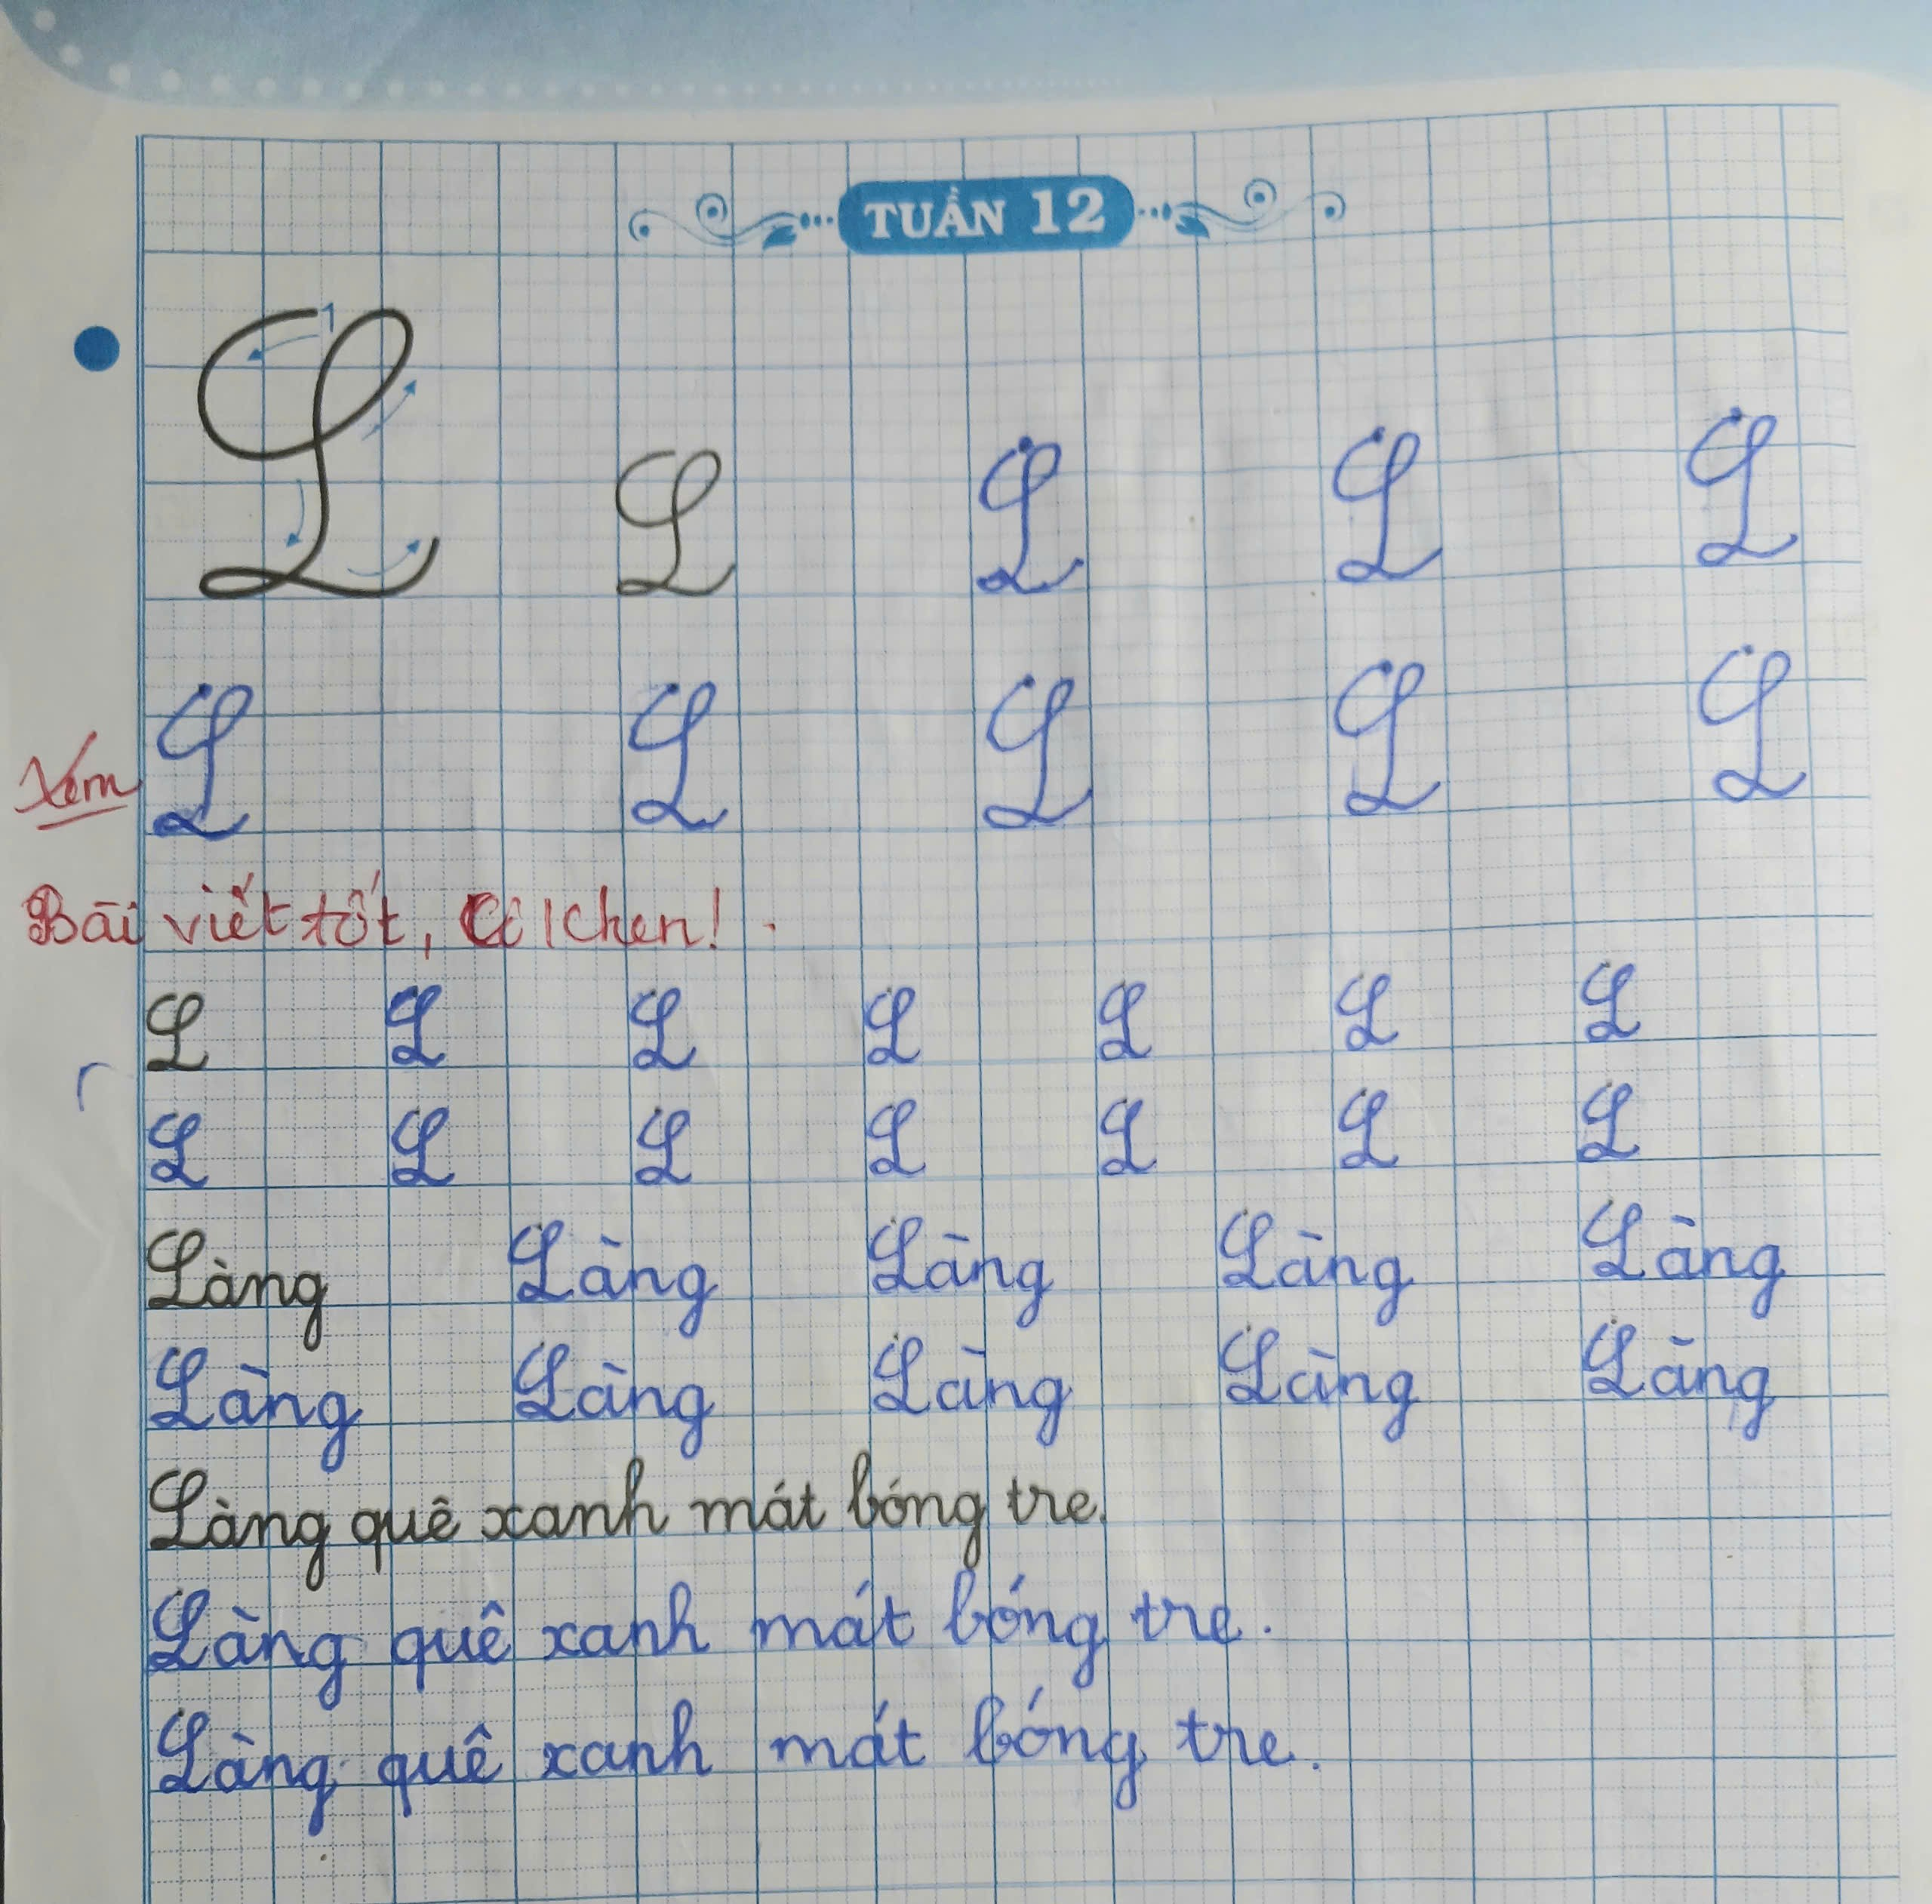 TUẦN 12
1
L L L L
L L L L L
Xem
Bài viết tốt, Cô khen!
L L L L L L L
L L L L L L L
Làng Làng Làng Làng Làng
Làng Làng Làng Làng Làng
Làng quê xanh mát bóng tre.
Làng quê xanh mát bóng tre.
Làng quê xanh mát bóng tre.